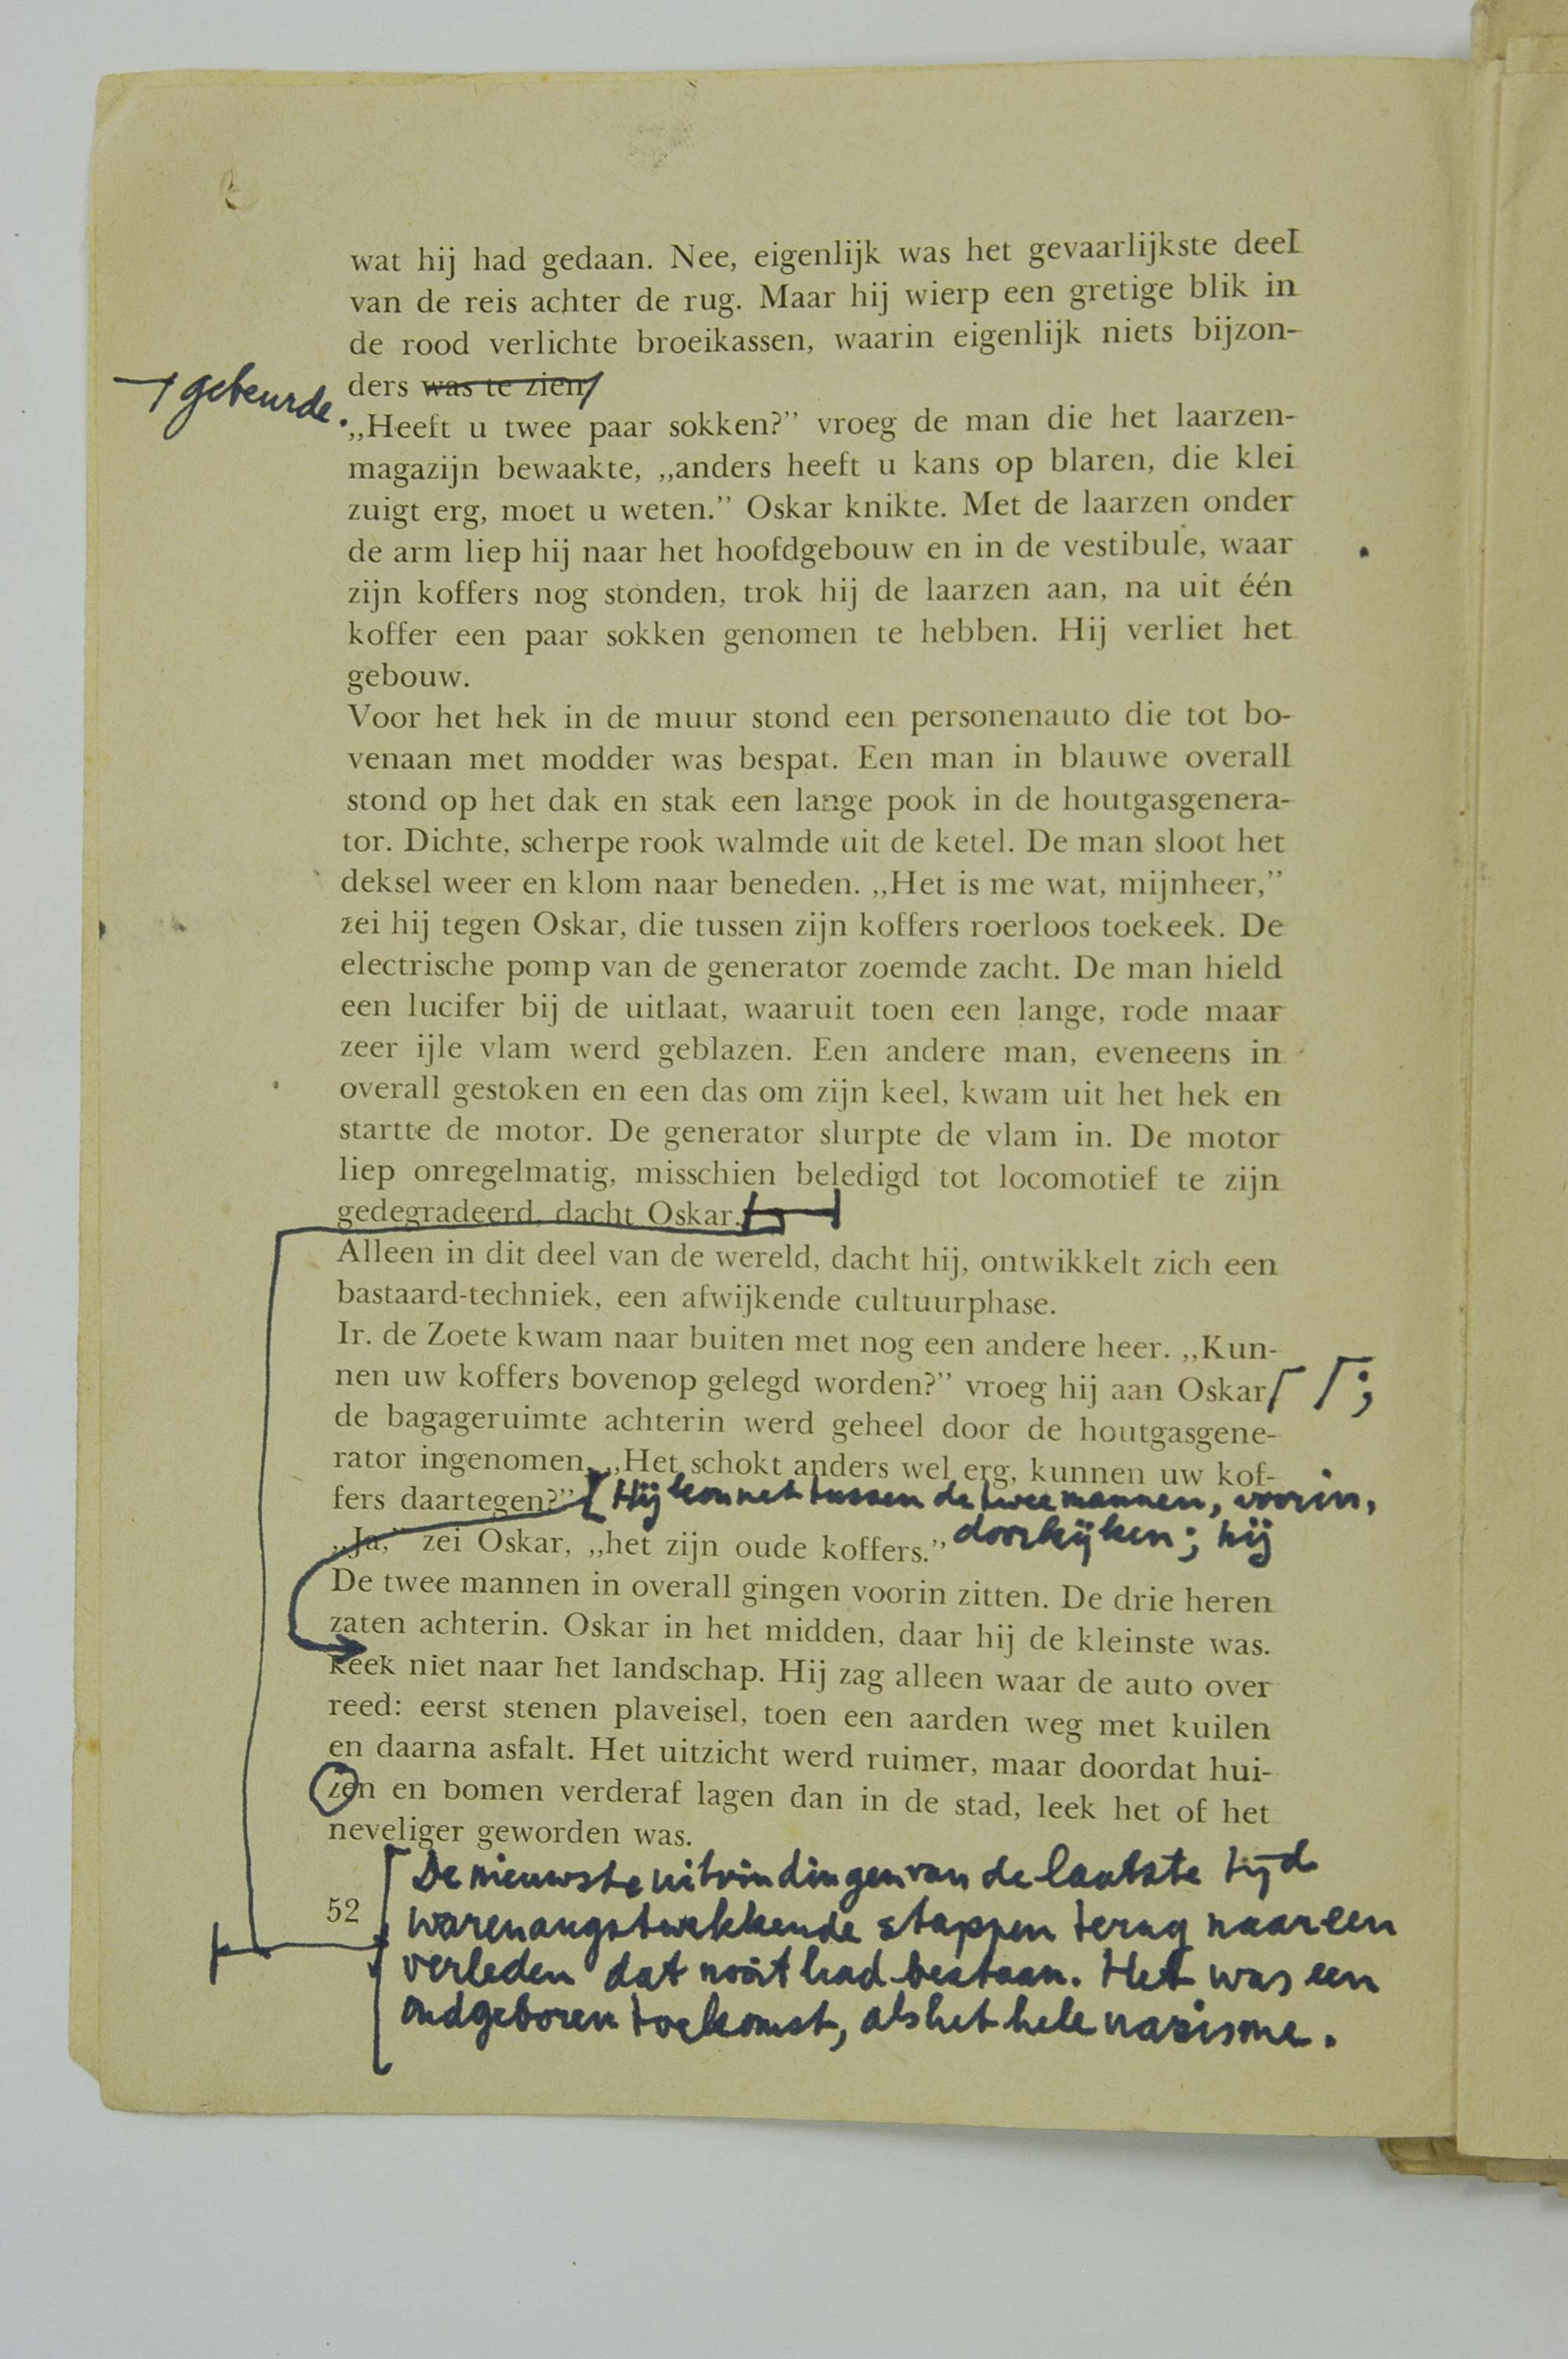 wat hij had gedaan. Nee, eigenlijk was het gevaarlijkste deel
van de reis achter de rug. Maar hij wierp een gretige blik in
de rood verlichte broeikassen, waarin eigenlijk niets bijzon-
ders was te zien
gebeurde.
„Heeft u twee paar sokken?” vroeg de man die het laarzen-
magazijn bewaakte, „anders heeft u kans op blaren, die klei
zuigt erg, moet u weten.” Oskar knikte. Met de laarzen onder
de arm liep hij naar het hoofdgebouw en in de vestibule, waar
zijn koffers nog stonden, trok hij de laarzen aan, na uit één
koffer een paar sokken genomen te hebben. Hij verliet het
gebouw.
Voor het hek in de muur stond een personenauto die tot bo-
venaan met modder was bespat. Een man in blauwe overall
stond op het dak en stak een lange pook in de houtgasgenera-
tor. Dichte, scherpe rook walmde uit de ketel. De man sloot het
deksel weer en klom naar beneden. „Het is me wat, mijnheer,”
zei hij tegen Oskar, die tussen zijn koffers roerloos toekeek. De
electrische pomp van de generator zoemde zacht. De man hield
een lucifer bij de uitlaat, waaruit toen een lange, rode maar
zeer ijle vlam werd geblazen. Een andere man, eveneens in
overall gestoken en een das om zijn keel, kwam uit het hek en
startte de motor. De generator slurpte de vlam in. De motor
liep onregelmatig, misschien beledigd tot locomotief te zijn
gedegradeerd, dacht Oskar.
Alleen in dit deel van de wereld, dacht hij, ontwikkelt zich een
bastaard-techniek, een afwijkende cultuurphase.
Ir. de Zoete kwam naar buiten met nog een andere heer. „Kun-
nen uw koffers bovenop gelegd worden?” vroeg hij aan Oskar ;
de bagageruimte achterin werd geheel door de houtgasgene-
rator ingenomen. „Het schokt anders wel erg, kunnen uw kof-
fers daartegen?” Hij kon net tussen de twee mannen, voorin,
doorkijken; hij
„Ja,” zei Oskar, „het zijn oude koffers.”
De twee mannen in overall gingen voorin zitten. De drie heren
zaten achterin. Oskar in het midden, daar hij de kleinste was.
keek niet naar het landschap. Hij zag alleen waar de auto over
reed: eerst stenen plaveisel, toen een aarden weg met kuilen
en daarna asfalt. Het uitzicht werd ruimer, maar doordat hui-
zen en bomen verderaf lagen dan in de stad, leek het of het
neveliger geworden was.
De nieuwste uitvindingen van de laatste tijd
52
waren angstwekkende stappen terug naar een
verleden dat nooit had bestaan. Het was een
oudgeboren toekomst, als het hele nazisme.